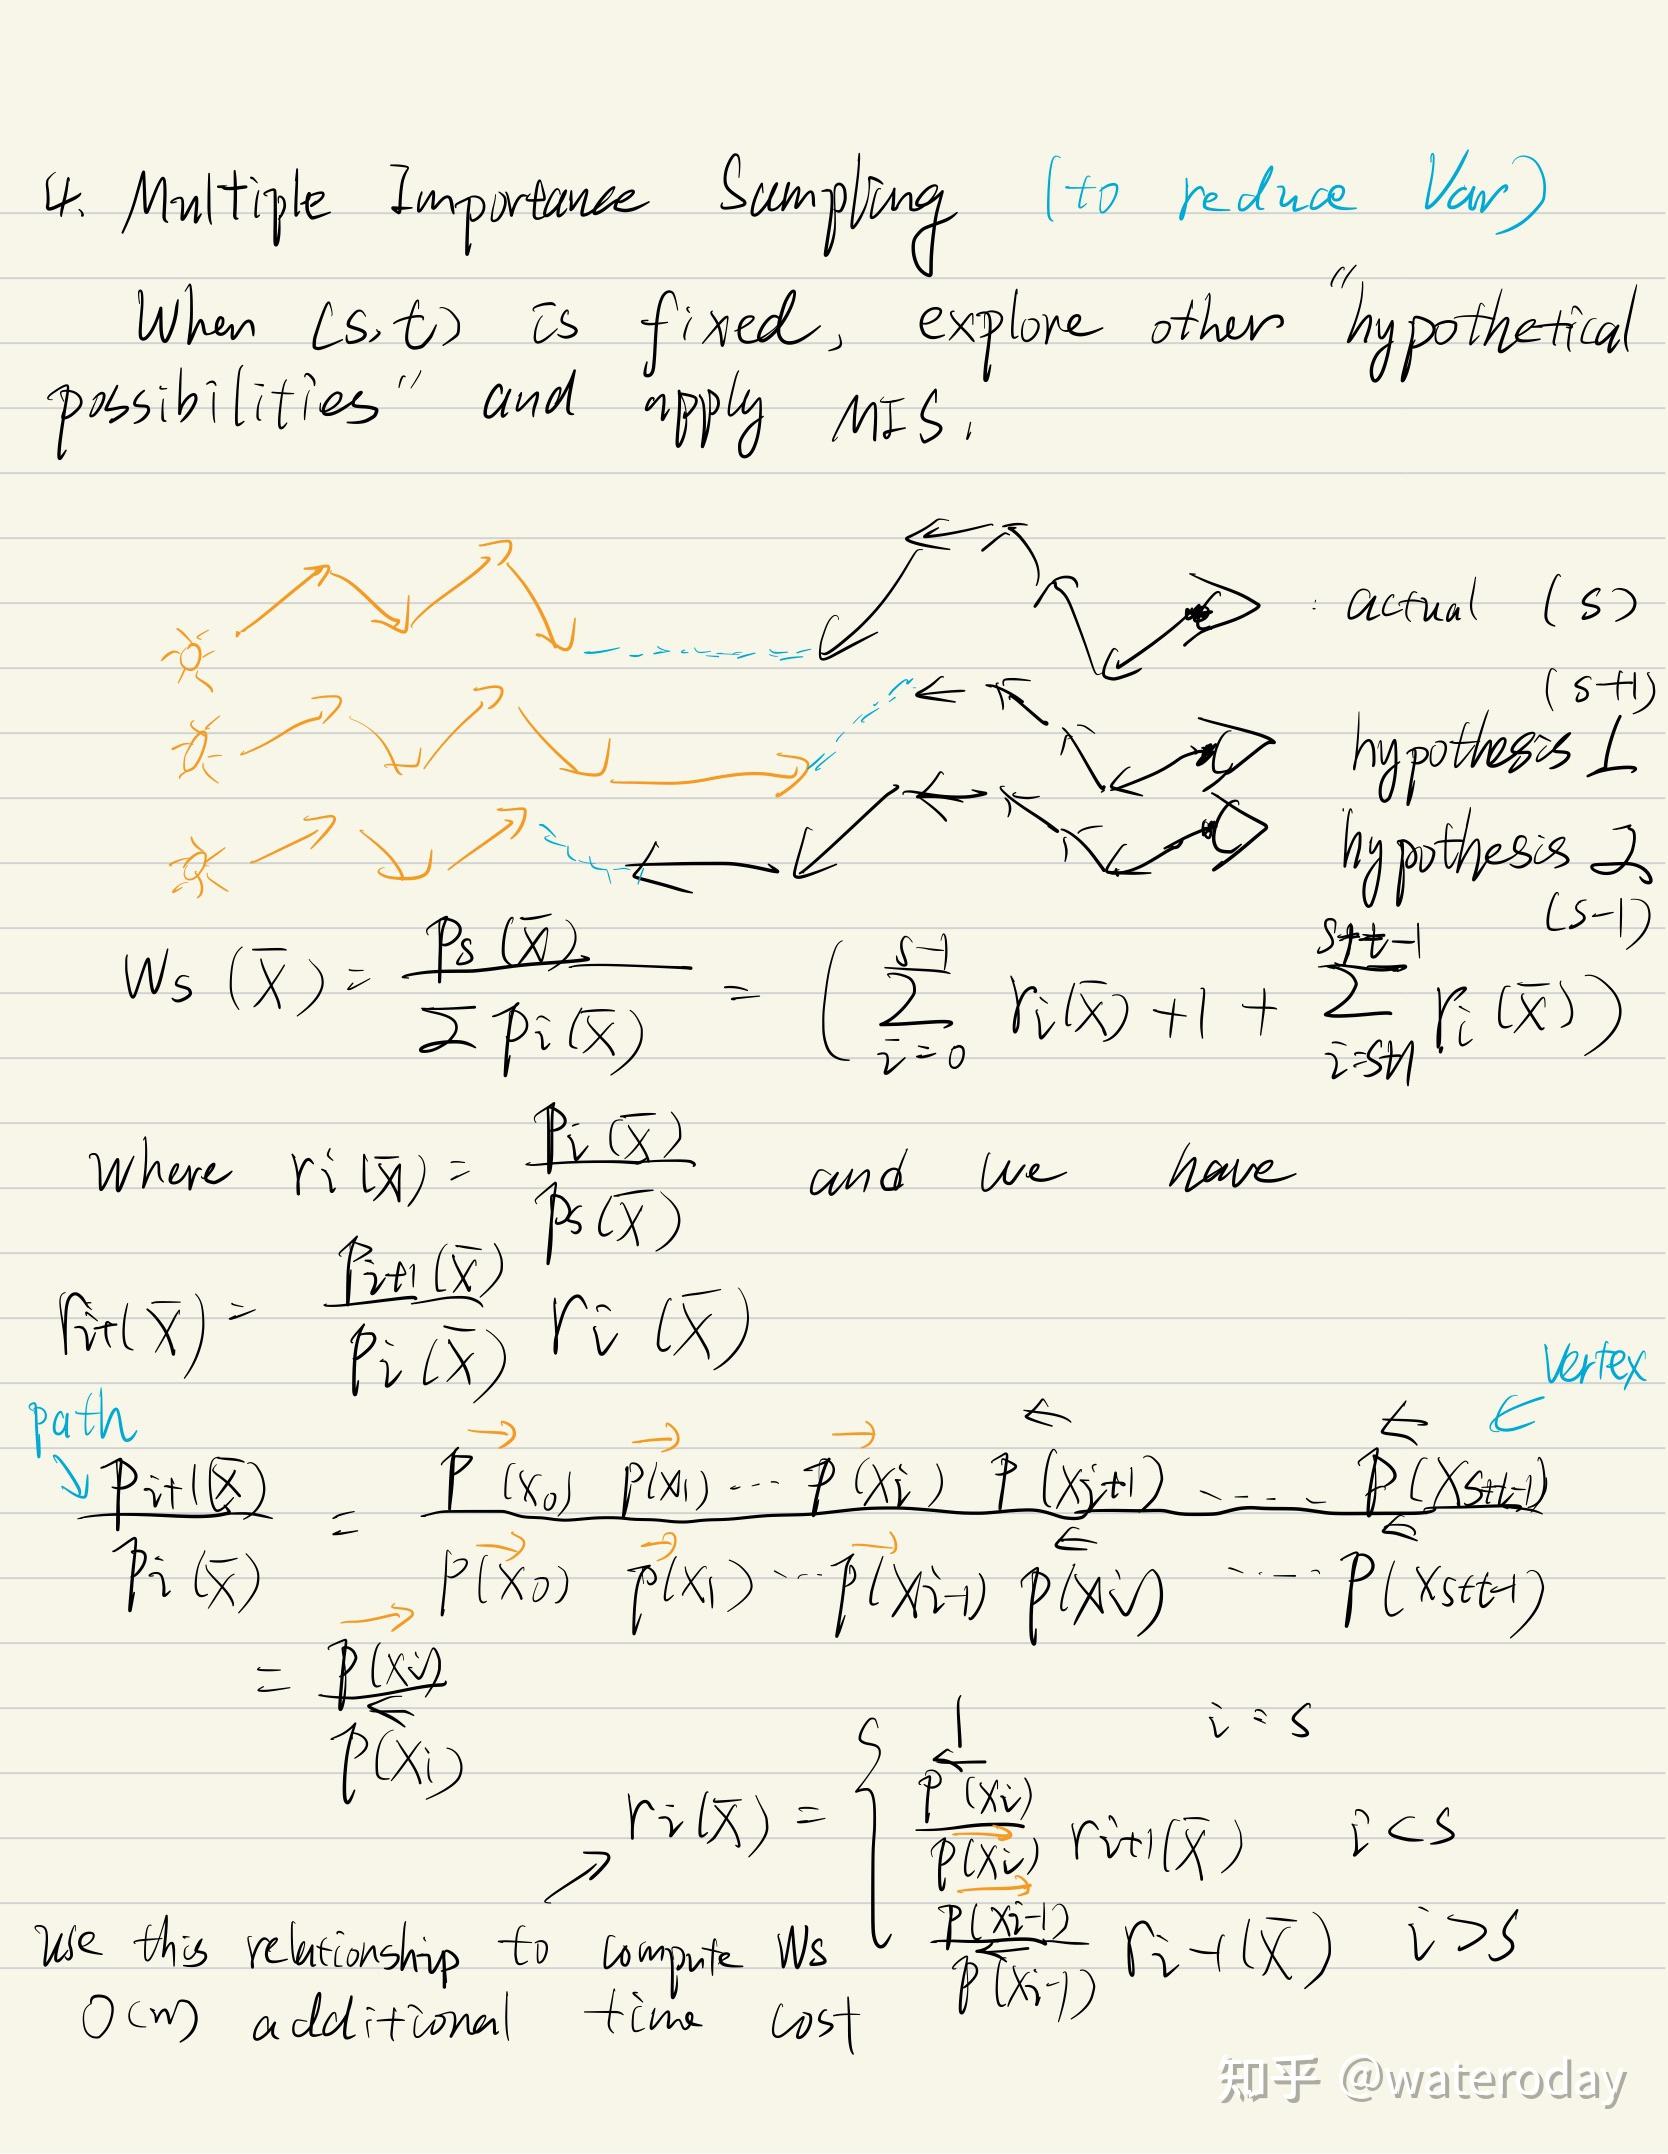 4. Multiple Importance Sampling (to reduce Var)
When (s,t) is fixed, explore other "hypothetical
possibilities" and apply MIS.
: actual (s)
(s+1)
hypothesis 1
hypothesis 2
(s-1)
Ws(x̄) = ps(x̄) / Σ pi(x̄) = ( Σ_{i=0}^{s-1} ri(x̄) + 1 + Σ_{i=s+1}^{s+t-1} ri(x̄) )
where ri(x̄) = pi(x̄) / ps(x̄) and we have
ri+1(x̄) = pi+1(x̄) / pi(x̄) ri(x̄)
vertex
path
pi+1(x̄) / pi(x̄) = p→(x0) p→(x1) ... p→(xi) p←(xi+1) ..... p←(xs+t-1) / p→(x0) p→(x1) ... p→(xi-1) p←(xi) ..... p←(xs+t-1)
= p→(xi) / p←(xi)
ri(x̄) = { 1 i = s
p←(xi) / p→(xi) ri+1(x̄) i < s
p→(xi-1) / p←(xi-1) ri-1(x̄) i > s
use this relationship to compute Ws
O(n) additional time cost
知乎 @wateroday